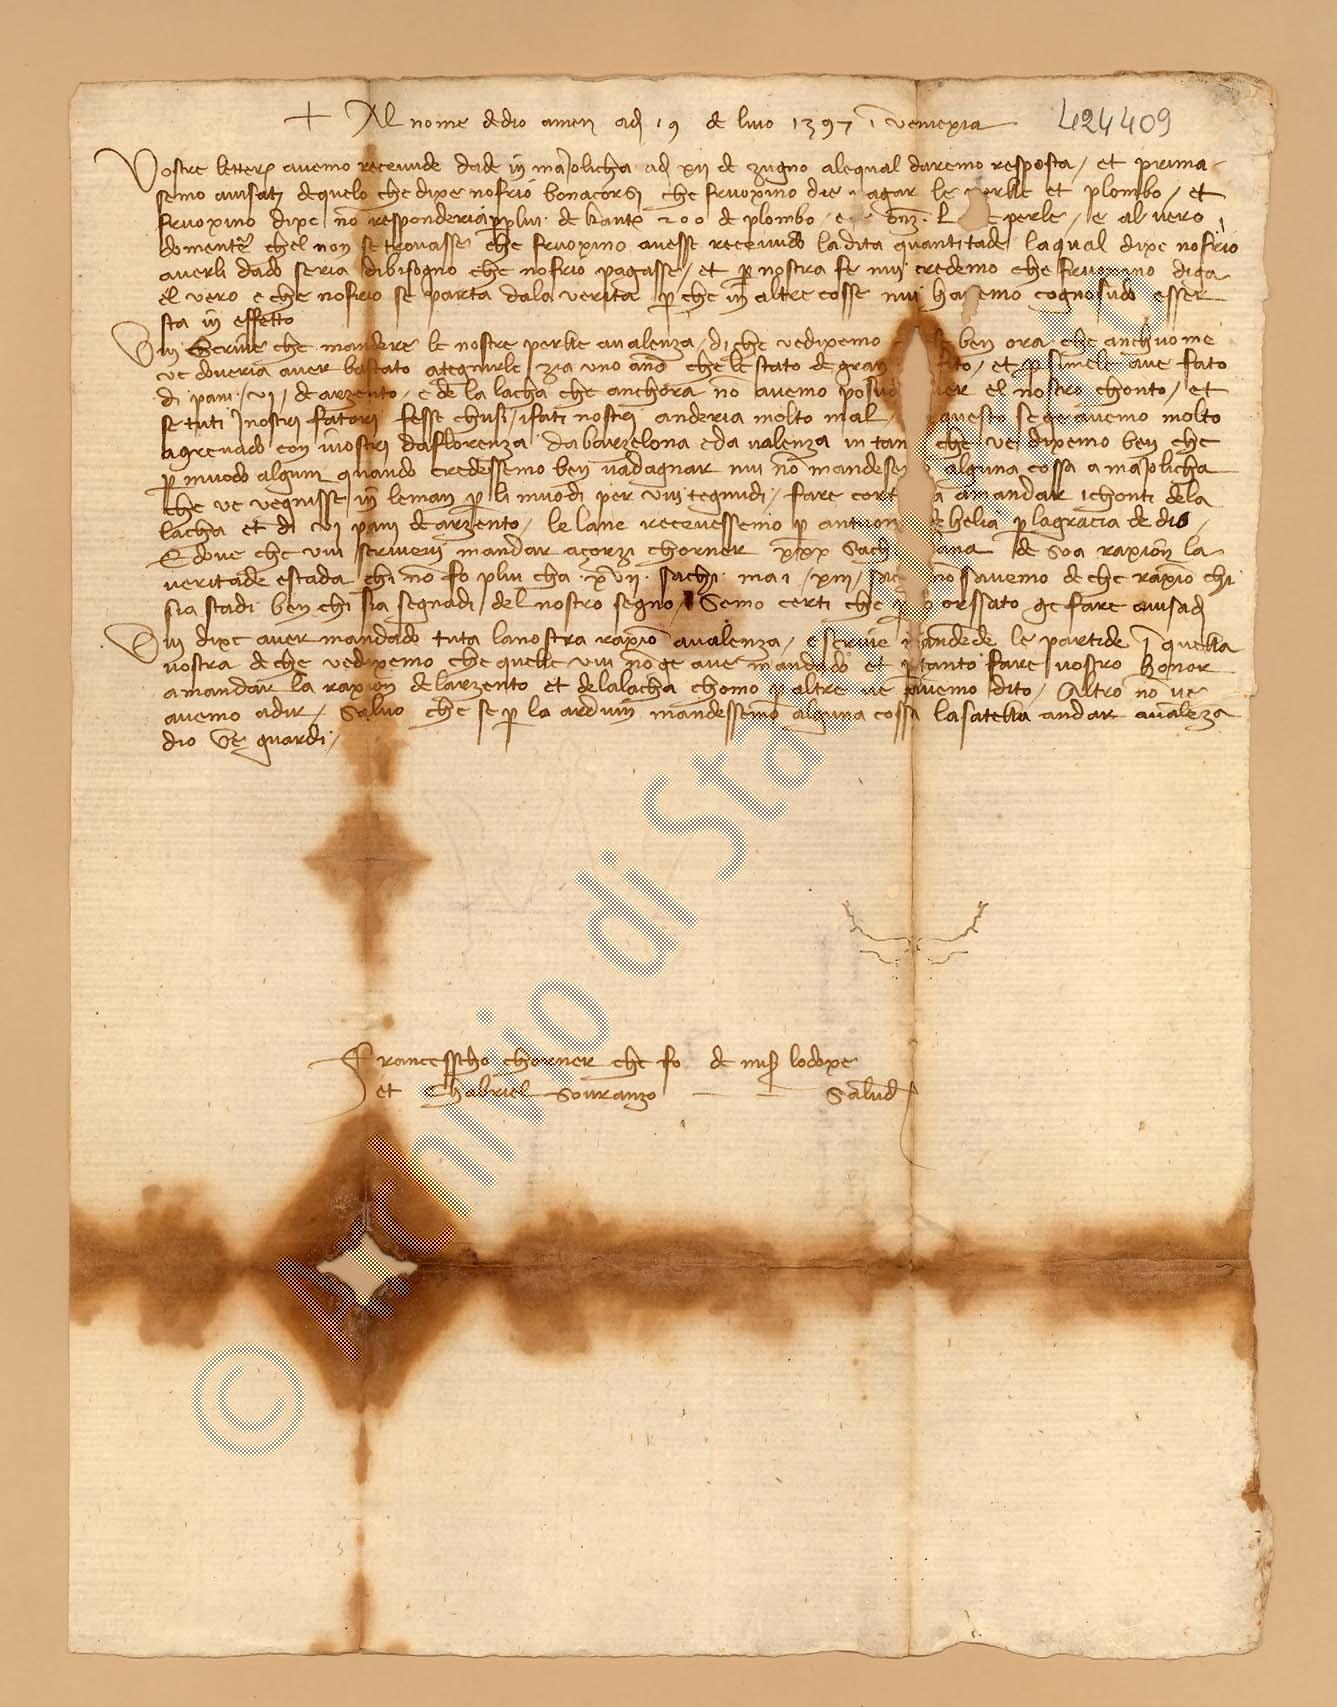 + Al nome dedio amen adj 19 de luio 1397 i veniexia
424409
Vostre letter avemo rezevude dade in maiolicha adj xii de zugno alequal daremo resposta / et prima
semo avisati dequelo che dixe nofrio bonacorsi che fruoxino die pagar le perle et plombo / et
fruoxino dixe no responderia per plui de kantr 200 de plombo / e perle / e al vero
domente chel non se trovasse che fruoxino avesse rezevudo ladita quantitade laqual dixe nofrio
averli dado seria dibisogno che nofrio pagasse / et p nostra fe nui credemo che fruoxino diga
el vero e che nofrio se parta dala verita p che in altre cosse nui havemo cognosudo esser
sta in effetto
Vui scrive che mandere le nostre perle avalenza / di che vedixemo ben ora che anchuo me
ve doveria aver bastato a tegnirle zia uno ano che le stato de gran et p simele ave fato
di pani / vi / de arzento / e de la lacha che anchora no avemo posudo aver el nostro chonto / et
se tuti inostri fatori fesse chusi / ifati nostri anderia molto mal / questo se gravemo molto
agrevado con ivostri daflorenza dabarzelona e da valenza in tan che ve dixemo ben che
p muodo algun quando credessemo ben vadagnar nui no mandesemo alguna cossa a maiolicha
che ve vegnisse in leman p li muodi per vui tegnudi / fare cort amandar ichonti dela
lacha et di vi pani de arzento / le lane rezevessemo p antuonio dehelia p lagracia de dio /
E dove che vui scrivevi mandar açorzi chorner xxx sach lana de soa raxion la
veritade e stada chi no fo plui cha xvii sachi ma i / xiii / sach no savemo de che raxio chi
sia stadi ben chi sia segnadi del nostro segno / Semo certi che orssato ge fare avisadj
Vui dixe aver mandado tuta lanostra raxio avalenza / e scrive mandede le partide i quella
vostra de che vedixemo che quelle vui no ge ave mandado et p tanto fare vostro honor
amandar la raxion delarzento et delalacha chomo p altre ve avemo dito / Altro no ve
avemo adir / salvo che se p la arduin mandessemo alguna cossa lasatella andar avaleza
dio ve guardi /
Francesscho chorner che fo de mis lodoxe
et Ghabriel Souranzo — — Salud
© Archivio di Stato di Prato